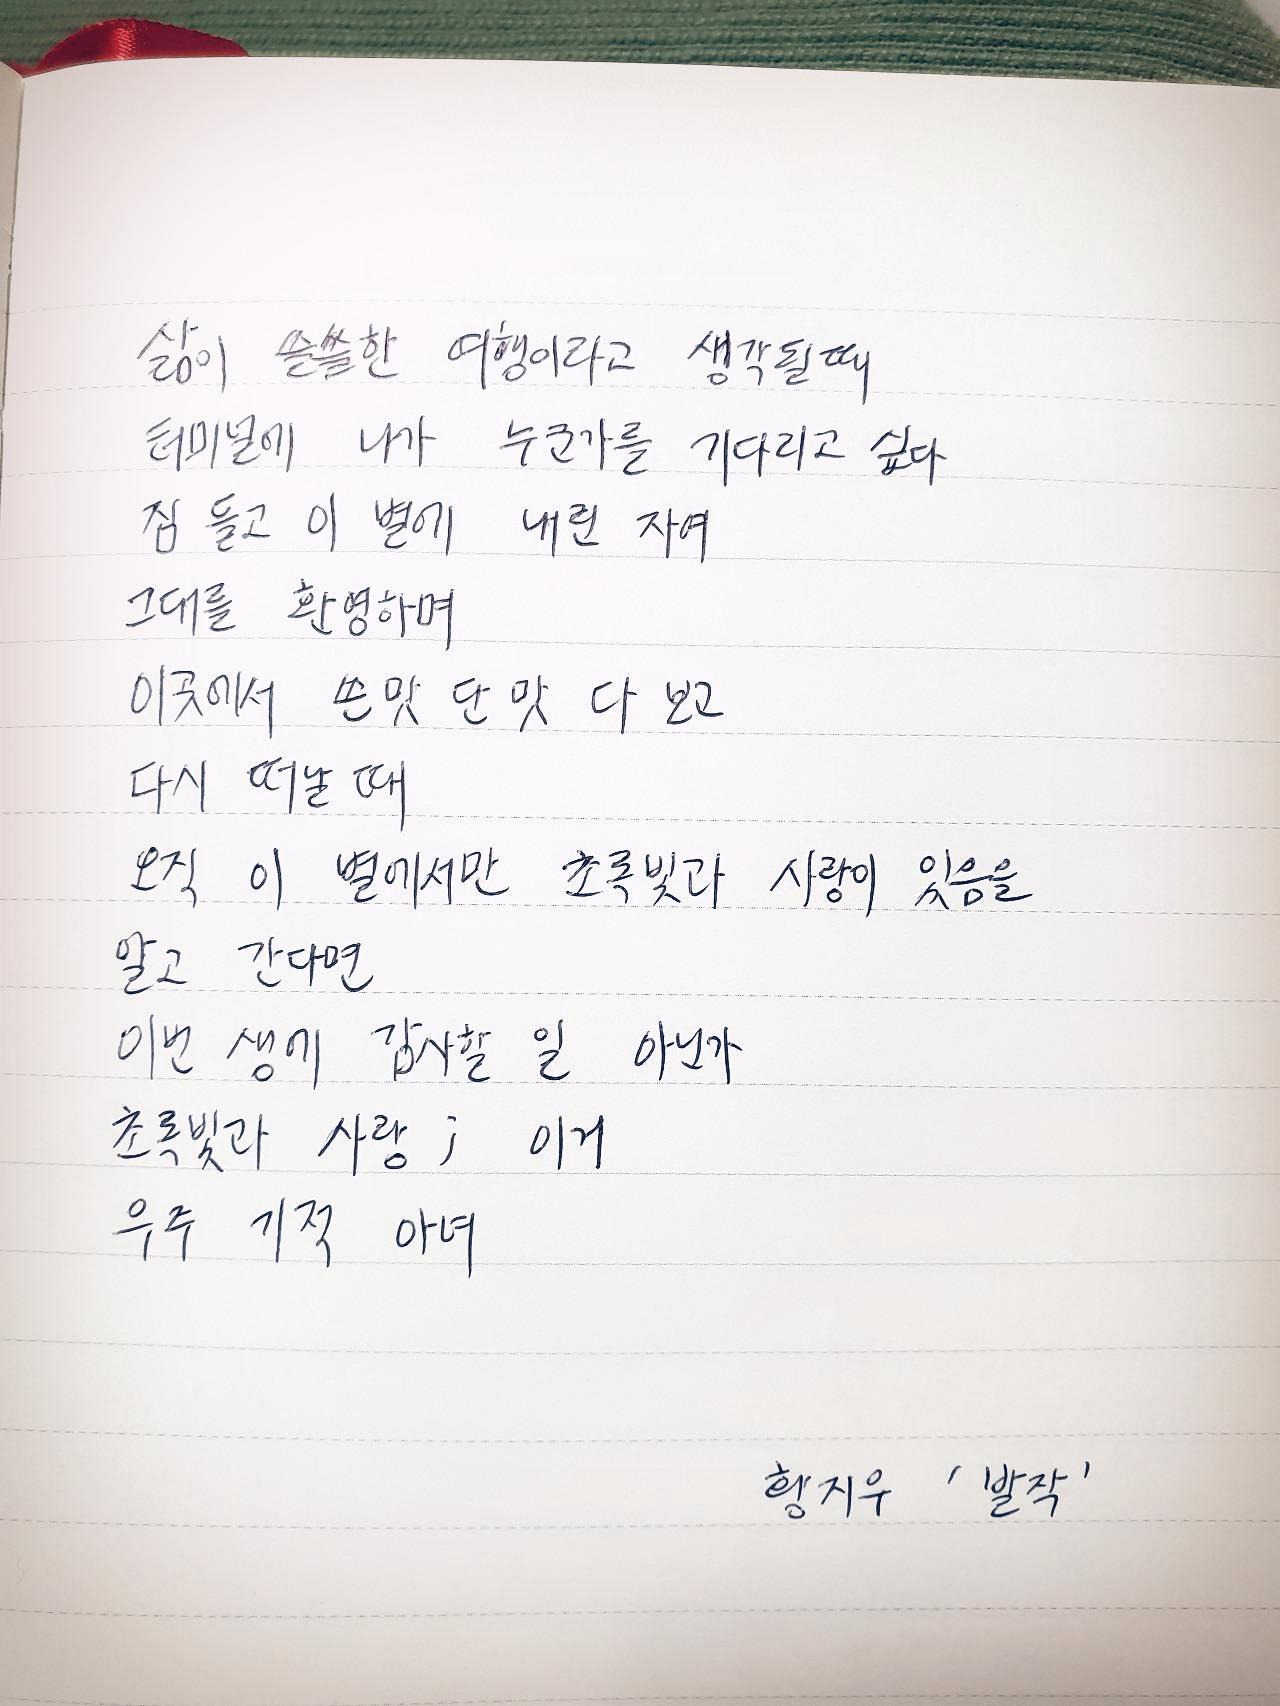 삶이 쓸쓸한 여행이라고 생각될때
터미널에 나가 누군가를 기다리고 싶다
짐 들고 이 별에 내린 자여
그대를 환영하며
이곳에서 쓴맛 단맛 다 보고
다시 떠날 때
오직 이 별에서만 초록빛과 사랑이 있음을
알고 간다면
이번 생에 감사할 일 아닌가
초록빛과 사랑; 이거
우주 기적 아녀
황지우 '발작'